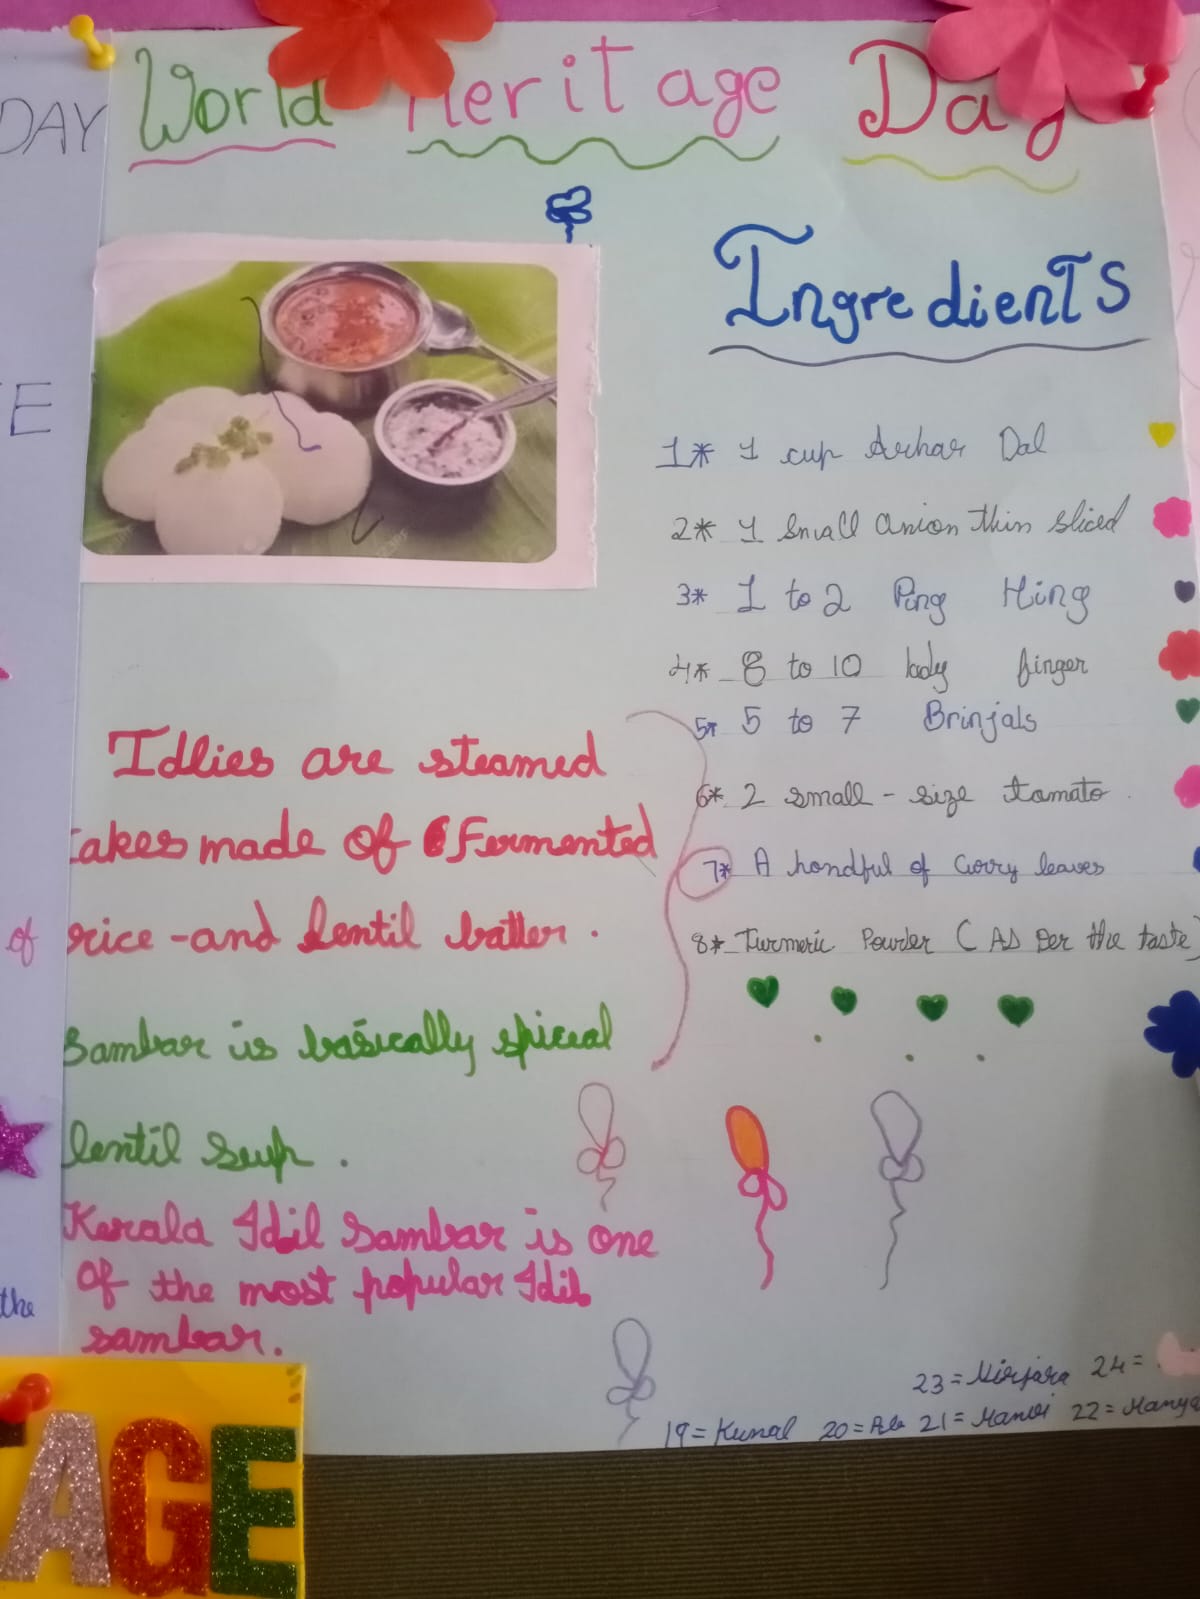 DAY
World Heritage Day
Ingredients
E
1* 1 cup Arhar Dal
2* 1 Small Onion thin sliced
3* 1 to 2 Ping Hing
4* 8 to 10 lady finger
5* 5 to 7 Brinjals
6* 2 small-size tomato.
7* A handful of Curry leaves
8* Turmeric Powder (AS Per the taste)
Idlies are steamed
cakes made of Fermented
of
rice-and lentil batter.
Sambar is basically spiced
lentil soup.
Kerala Idil Sambar is one
of the most popular Idil
sambar.
the
23=Nirjara 24=
19=Kunal 20= 21=Manvi 22=Manya
AGE